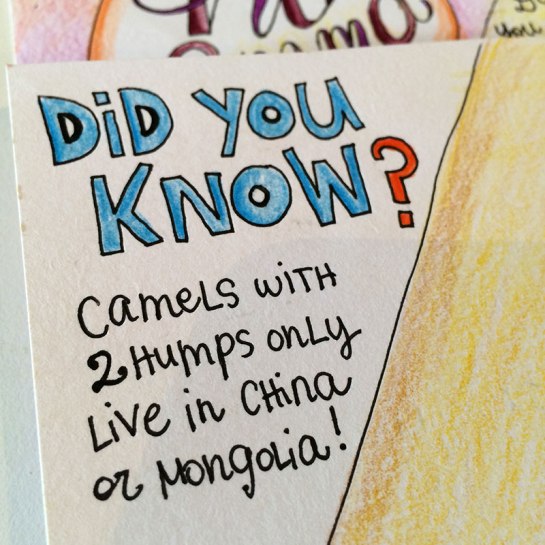 DiD YOU
KNOW?
CameLS WITH
2 Humps onLy
Live in CHina
or Mongolia!
you